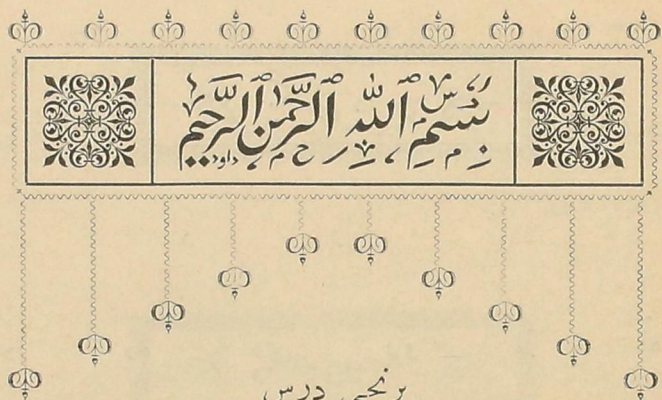 بِسْمِ ٱللّٰهِ ٱلرَّحْمٰنِ ٱلرَّحِيمِ
داود
برنجى درس